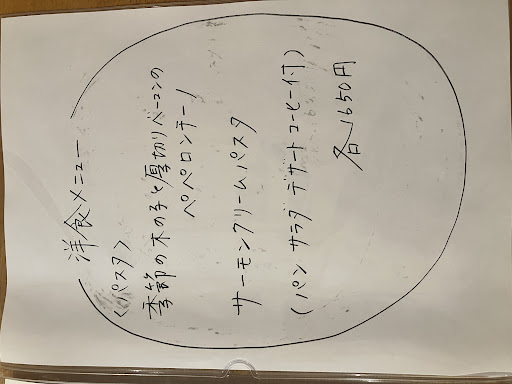 洋食メニュー
〈パスタ〉
季節の木の子と厚切りベーコンの
ペペロンチーノ
サーモンクリームパスタ
(パン サラダ デザート コーヒー付)
各1650円